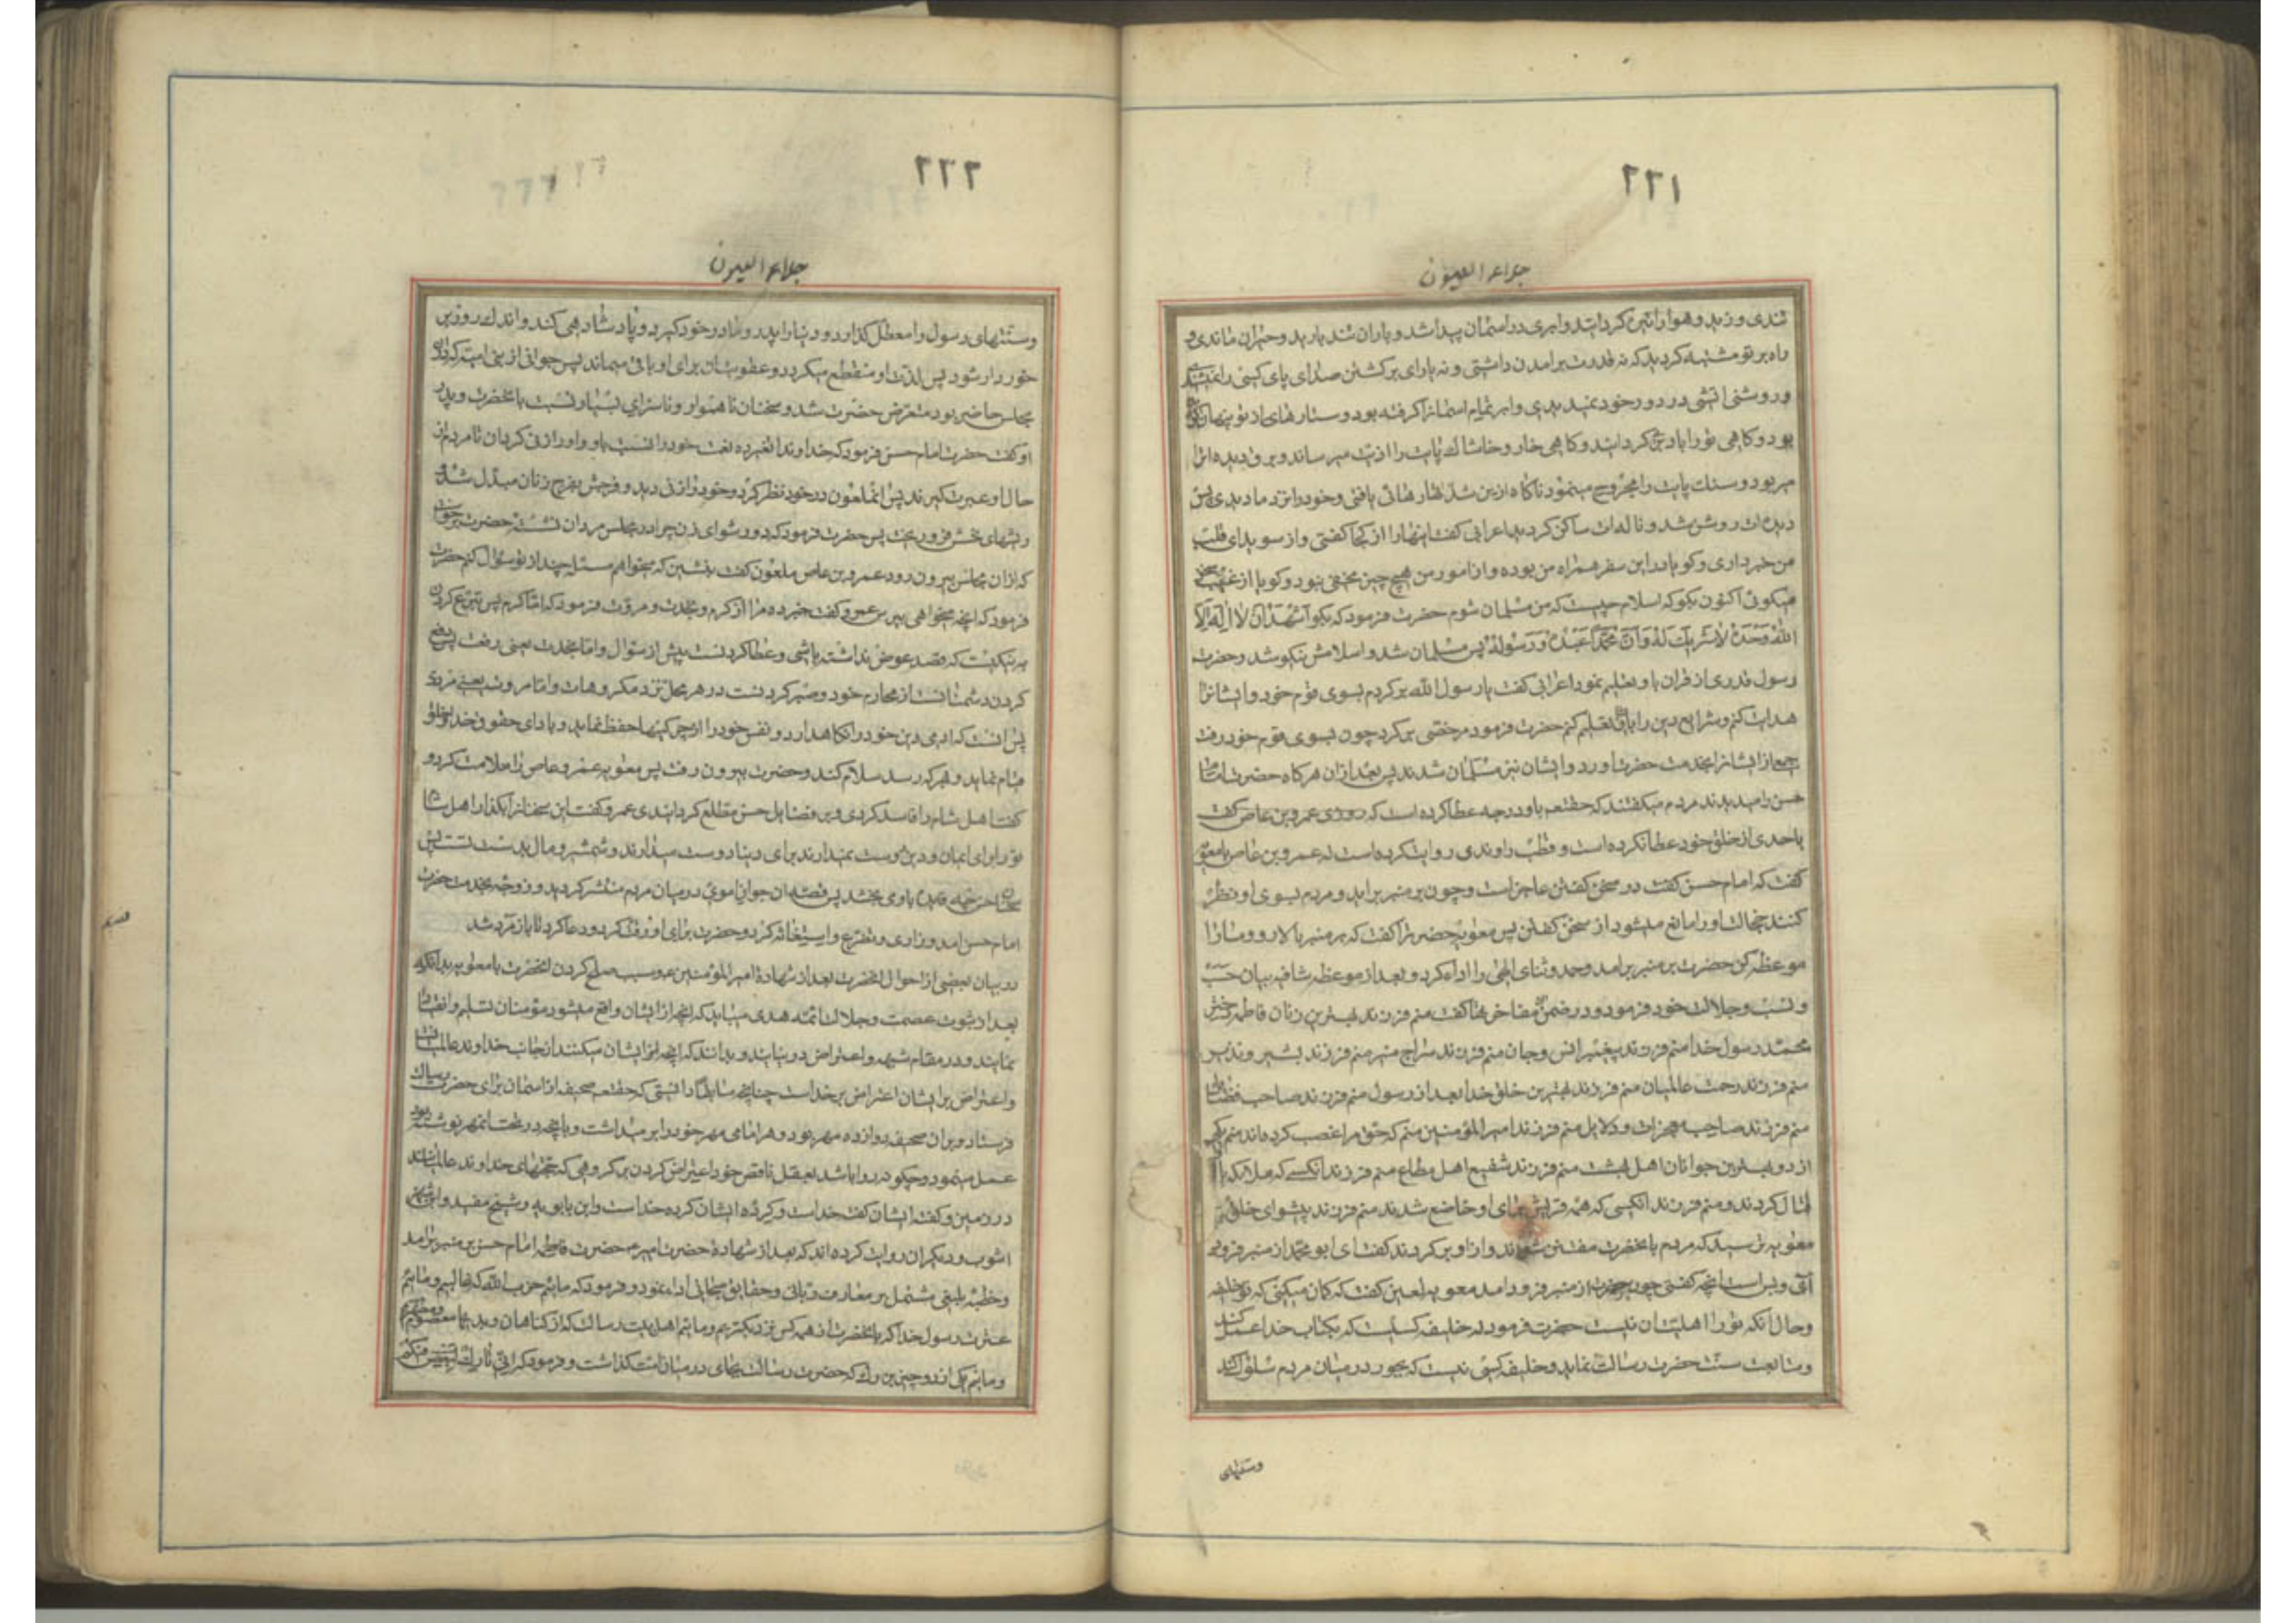 ٢٢١
جلاء العیون
تندی وزید وهوا را تیره کردانید وابری در اسمان پیدا شد وباران تند بارید وحیران ماندی و
راه بر تو مشتبه کردید که نه قدرت برامدن داشتی و نه یارای برکشتن صدای پای کسی را
وروشنی اتشی در دور خود نمیدیدی وابر تمام اسمانرا کرفته بود وستارهای از تو پنهان
بود وکاهی تورا باد می کردانید وکاهی خار وخاشاک پایت را اذیت میرساند وبرق دیده ات را
میربود وسنک پایت را مجروح مینمود ناکاه ازین شدتها رهائی یافتی وخود را نزد ما دیدی پس
دیده ات روشن شد و ناله ات ساکن کردید اعرابی کفت اینها را از کجا کفتی واز سویدای قلب
من خبر داری وکویا در این سفر همراه من بوده و از امور من هیچ چیز مخفی نبود وکویا از غیب
میکوئی اکنون بکو که اسلام چیست که من مسلمان شوم حضرت فرمود که بکو اشهد ان لا اله الا
الله وحده لا شریک له وان محمدا عبده ورسوله پس مسلمان شد واسلامش نیکو شد وحضرت
رسول قدری از قران باو تعلیم نمود اعرابی کفت یا رسول الله برکردم بسوی قوم خود وایشانرا
هدایت کنم وشرایع دین را بایشان تعلیم کنم حضرت فرمود مرخصی برکرد چون بسوی قوم خود رفت
جمعی از ایشانرا بخدمت حضرت اورد وایشان نیز مسلمان شدند پس بعد از ان هرکاه حضرت امام
حسن را میدیدند مردم میکفتند که حقتعه باو درجه عطا کرده است که
باحدی از خلق خود عطا نکرده است و قطب راوندی روایت کرده است که عمرو بن عاص بامعویه
کفت که امام حسن کفت در سخن کفتن عاجز است وچون بر منبر براید و مردم بسوی او نظر
کنند خجالت او را مانع میشود از سخن کفتن پس معویه حضرترا کفت که بر منبر بالا رو ومارا
موعظه کن حضرت بر منبر برامد وحمد وثنای الهی را اداء کرد و بعد از موعظه شافیه بیان حسب
و نسب وجلالت خود فرمود ودر ضمن مفاخر کفت منم فرزند بهترین زنان فاطمه دختر
محمد رسول خدا منم فرزند پیغمبر انس وجان منم فرزند سراج منیر منم فرزند بشیر ونذیر
منم فرزند رحمت عالمیان منم فرزند بهترین خلق خدا بعد از رسول منم فرزند صاحب فضایل
منم فرزند صاحب معجزات ودلایل منم فرزند امیرالمؤمنین منم که حق مرا غصب کرده اند منم یکی
از دو بهترین جوانان اهل بهشت منم فرزند شفیع اهل مطاع منم فرزند انکسی که ملائکه با او
قتال کردند و منم فرزند انکسی که همه قریش برای او خاضع شدند منم فرزند پیشوای خلق
معویه ترسید که مردم بانحضرت مفتن شوند واز او برکردند کفت ای ابو محمد از منبر فرود
ائی وبس است انچه کفتی چون حضرت از منبر فرود امد معویه لعین کفت که کمان میکنی که تو خلیفه
وحال انکه تورا اهلیت ان نیست حضرت فرمود که خلیفه کسیست که بکتاب خدا عمل کند
ومتابعت سنت حضرت رسالت نماید وخلیفه کسی نیست که بجور در میان مردم سلوک کند
وسنتهای
٢٢٢
جلاء العیون
وسنتهای رسول را معطل کذارد و دنیا را پدر ومادر خود کیرد و پادشاهی کند واندک روزی
خوردار شود پس لذت او منقطع میکردد وعقوبتان برای او باقی میماند پس جوانی از بنی امیه که دران
مجلس حاضر بود متعرض حضرت شد وسخنان ناهموار وناسزای بسیار نسبت بانحضرت وپدر
او کفت حضرت امام حسن فرمود که خداوندا تغیر ده نعمت خود را نسبت باو واو را زنی کردان تا مردم از
حال او عبرت کیرند پس انملعون در خود نظر کرد وخود را زنی دید وفرجش بفرج زنان مبدل شد
وریشهای نحسش فرو ریخت پس حضرت فرمود که دور شو ای زن چرا در مجلس مردان نشستۀ حضرت
که از ان مجلس بیرون رود عمرو بن عاص ملعون کفت بنشین که میخواهم مسئلۀ چند از تو سؤال کنم حضرت
فرمود که انچه میخواهی بپرس عمرو کفت خبر ده مرا از کرم ونجدت و مروت فرمود که اما کرم پس تبرع کردن
به نیکیست که قصد عوض نداشته باشی وعطا کردنست پیش از سؤال واما نجدت یعنی رفعت پس دفع
کردن دشمنانست از محارم خود وصبر کردنست در هر محل نزد مکروهات واما مروت یعنی مردی
پس انست که ادمی دین خود را نکاهدارد و نفس خود را از چرکیها حفظ نماید وبادای حقوق خدا وخلق
قیام نماید وبهر که رسد سلام کند وحضرت بیرون رفت پس معویه عمرو عاص را ملامت کرد و
کفت اهل شام را فاسد کردی وبر فضایل حسن مطلع کردانیدی عمرو کفت این سخنانرا بکذار اهل شام
تورا برای ایمان ودین دوست نمیدارند برای دنیا دوست میدارند وشمشیر ومال بدست تست پس
سخنان حسن چه فایده باو می بخشد پس قصۀ ان جوان اموی در میان مردم منتشر کردید و زوجه بخدمت حضرت
امام حسن امد و زاری و تضرع واستغاثه کرد وحضرت برای او رقت کرد ودعا کرد تا باز مرد شد
در بیان بعضی از احوال انحضرت بعد از شهادة امیرالمؤمنین عه وسبب صلح کردن انحضرت با معویه بدانکه
بعد از ثبوت عصمت وجلالت ائمه هدی میباید که انچه از ایشان واقع میشود مؤمنان تسلیم وانقیاد
نمایند و در مقام شبهه واعتراض در نیایند و بدانند که انچه ایشان میکنند از جانب خداوند عالمیانست
واعتراض بر ایشان اعتراض بر خداست چنانچه سابقا دانستی که حقتعه صحیفۀ از اسمان برای حضرت رسالت
فرستاد وبر ان صحیفه دوازده مهر بود وهر امامی مهر خود را بر میداشت وبانچه در تحت انمهر نوشته بود
عمل مینمود وچکونه روا باشد بعقل ناقص خود اعتراض کردن بر کروهی که حجتهای خداوند عالمیانند
در زمین وکفتۀ ایشان کفتۀ خداست وکردۀ ایشان کرده خداست وابن بابویه وشیخ مفید وابن شهر
اشوب ودیکران روایت کرده اند که بعد از شهادة حضرت امیر عه حضرت امام حسن بر منبر برامد
وخطبۀ بلیغی مشتمل بر معارف ربانی وحقایق سبحانی اداء نمود و فرمود که مائیم حزب الله که غالبیم ومائیم
عترت رسول خدا که بانحضرت از همه کس نزدیکتریم ومائیم اهل بیت رسالت که از کناهان وبدیها معصوم ومطهریم
ومائیم یکی از دو چیز بزرک که حضرت رسالت بجای در میان امت کذاشت و فرمود که انی تارک فیکم